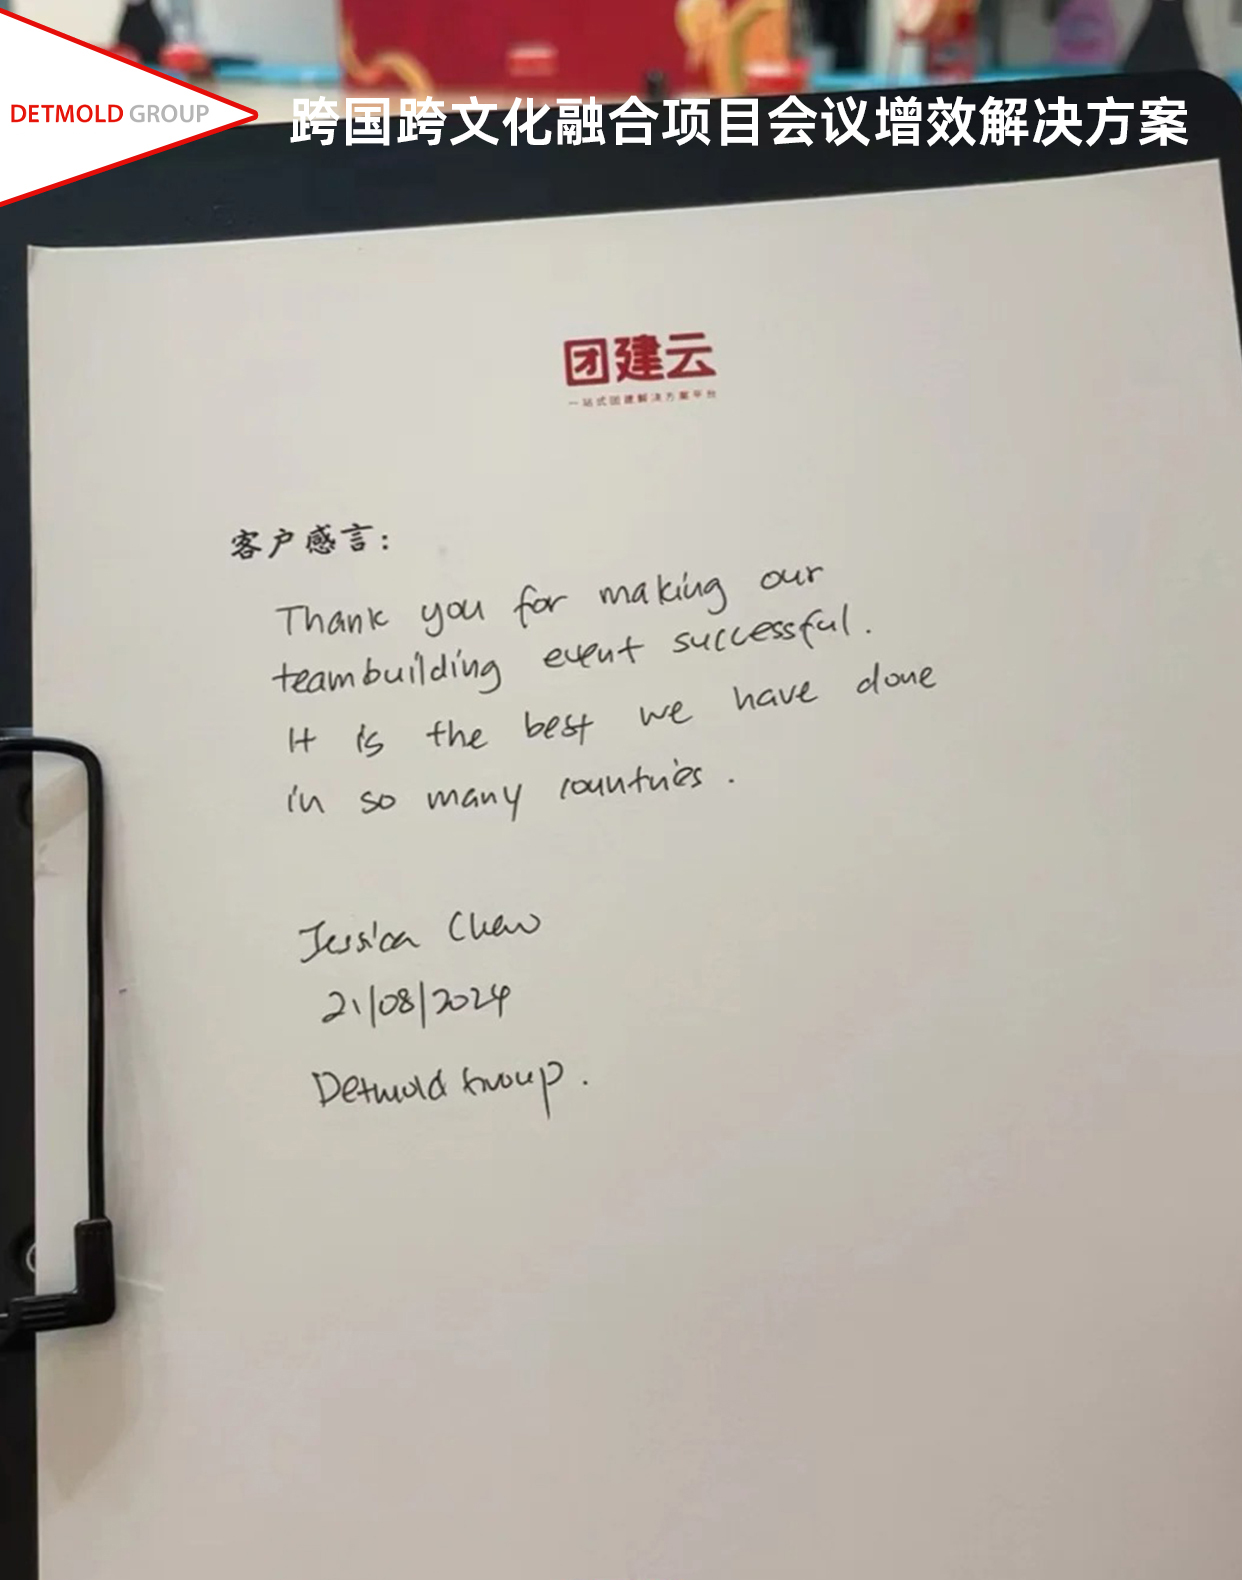 DETMOLD GROUP
跨国跨文化融合项目会议增效解决方案
团建云
一站式团建解决方案平台
客户感言:
Thank you for making our
teambuilding event successful.
It is the best we have done
in so many countries.
Jessica Chew
21/08/2024
Detmold Group.